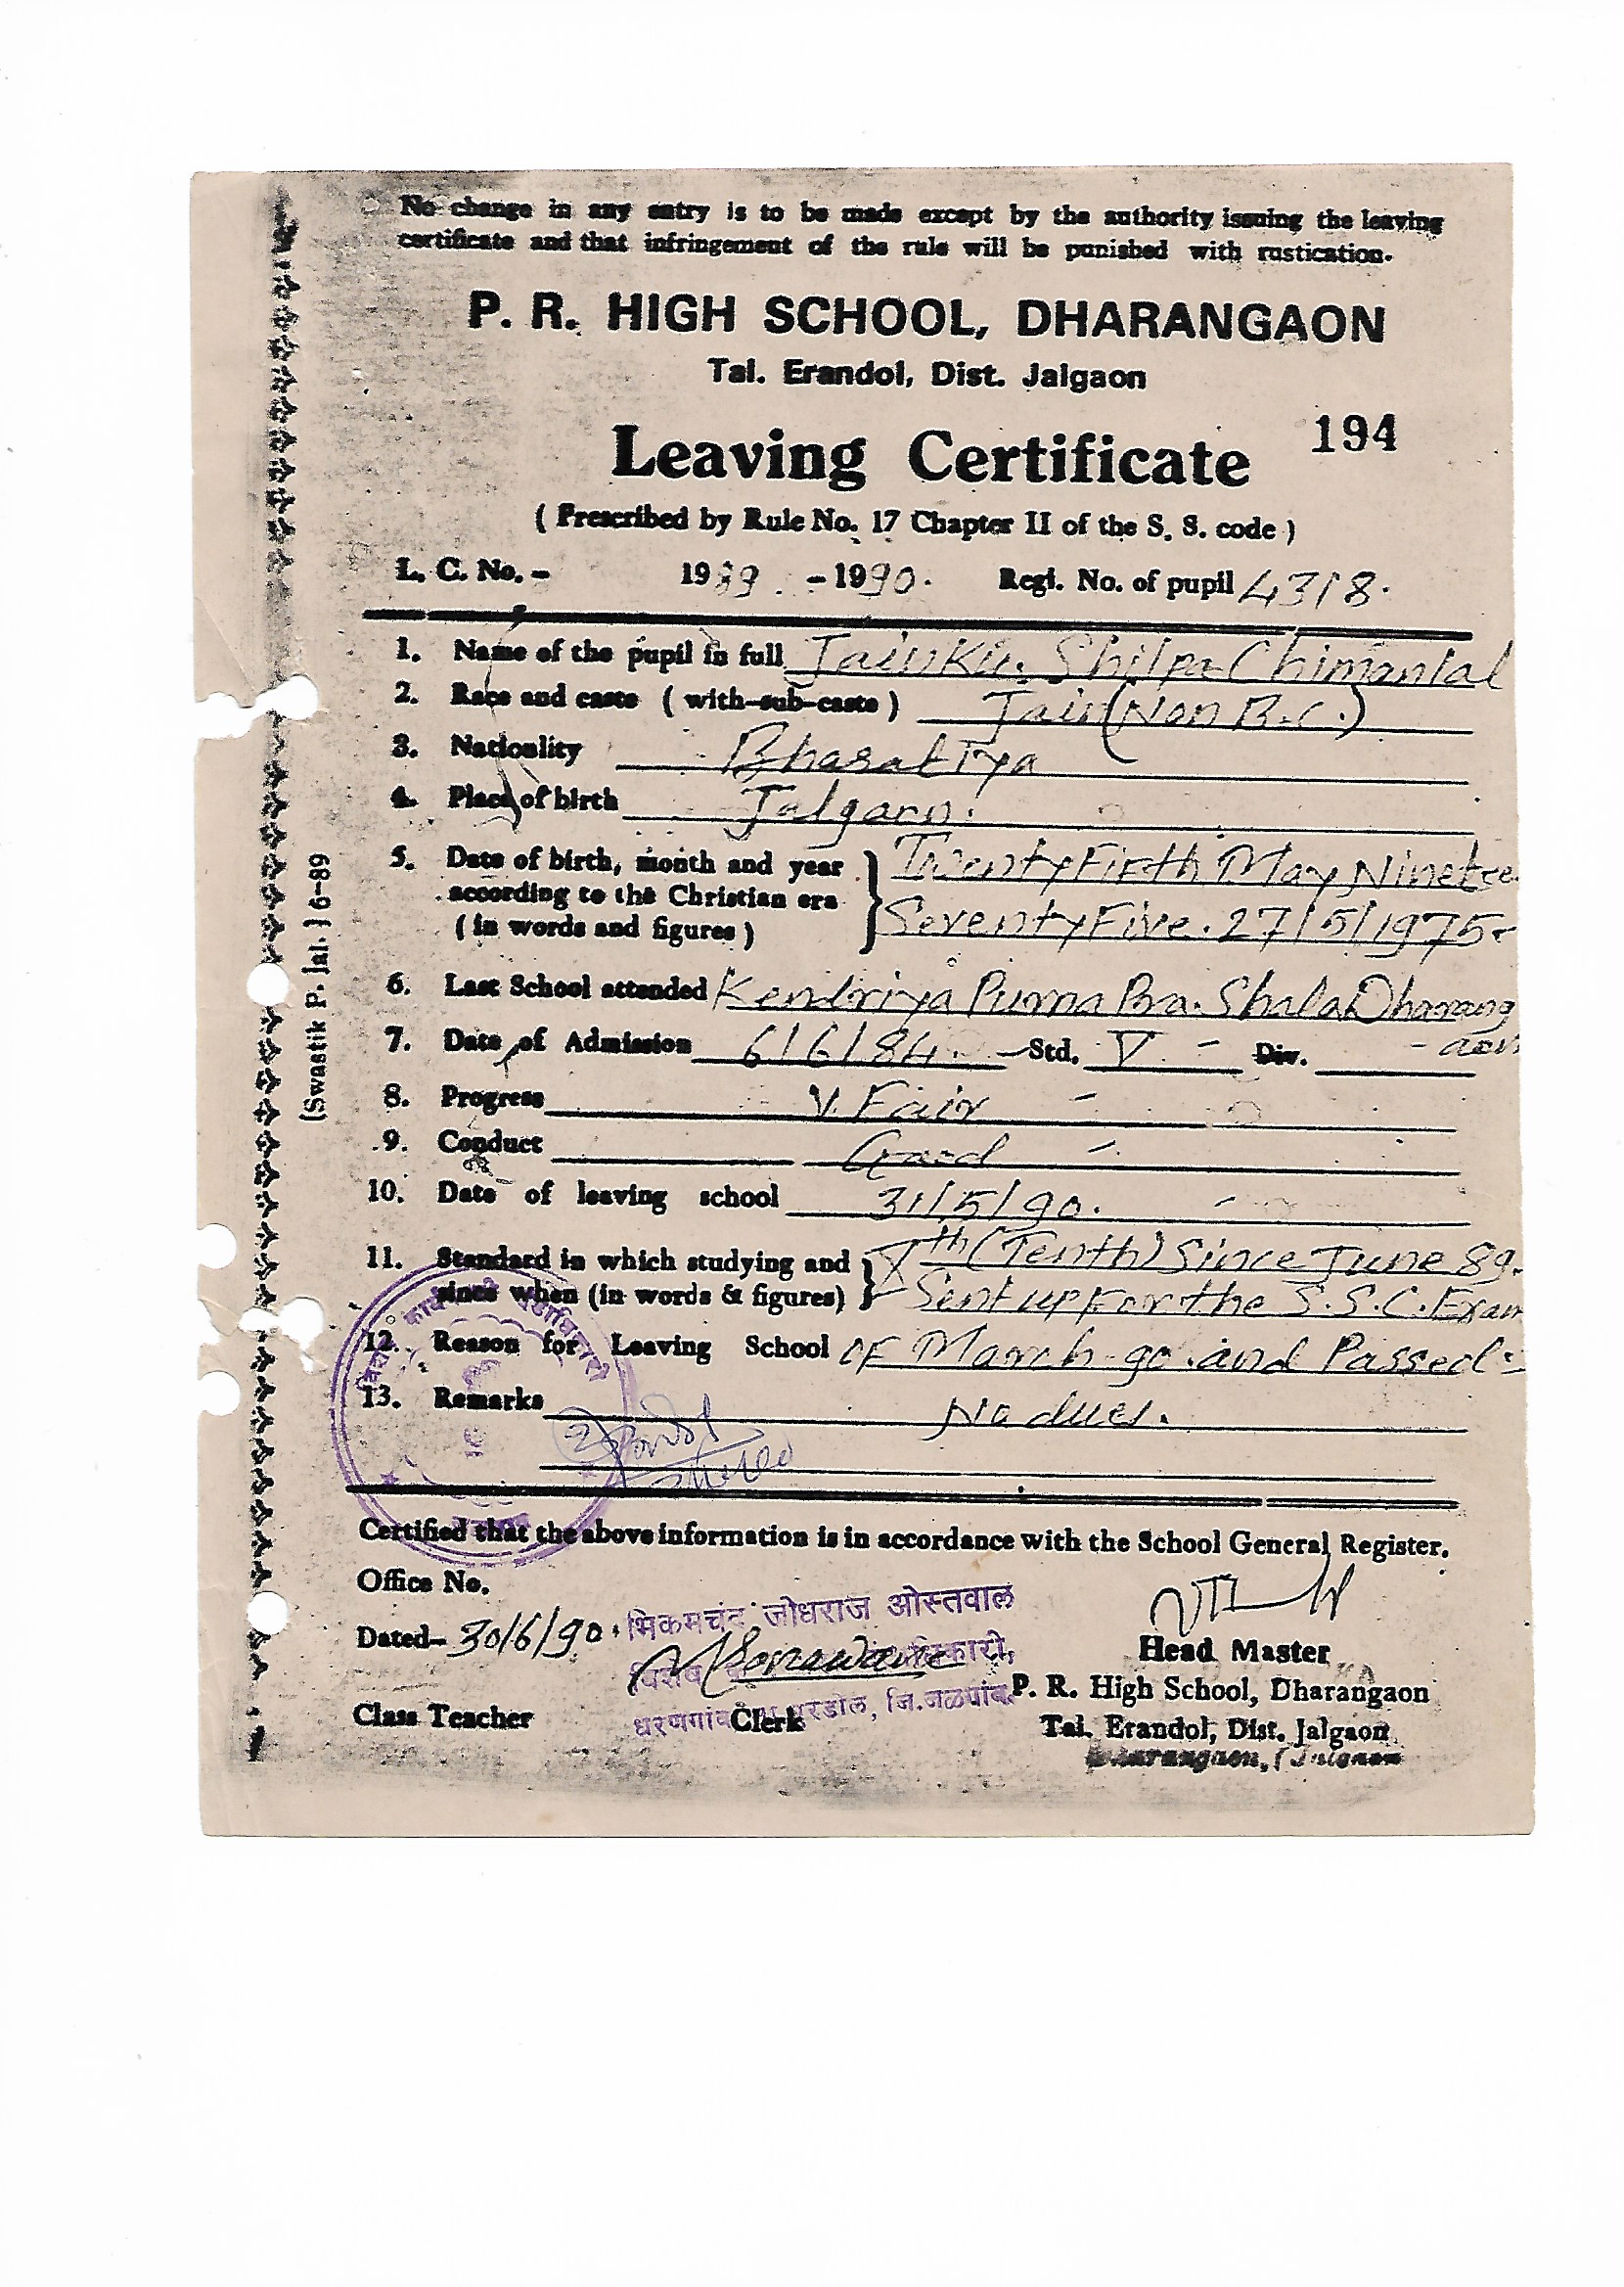 No change in any entry is to be made except by the authority issuing the leaving
certificate and that infringement of the rule will be punished with rustication.
P. R. HIGH SCHOOL, DHARANGAON
Tal. Erandol, Dist. Jalgaon
Leaving Certificate 194
( Prescribed by Rule No. 17 Chapter II of the S. S. code )
L. C. No. - 1989 - 1990. Regi. No. of pupil 4318.
1. Name of the pupil in full Jain Ku. Shilpa Chimanlal
2. Race and caste ( with-sub-caste ) Jain (Non B.C.)
3. Nationality Bharatiya
4. Place of birth Jalgaon.
5. Date of birth, month and year Twenty Fifth May Ninetee
according to the Christian era
( in words and figures ) Seventy Five. 27/5/1975
6. Last School attended Kendriya Purna Pra. Shala Dharang
7. Date of Admission 6/6/84. Std. V - Div. - aon
8. Progress V. Fair -
9. Conduct Good -
10. Date of leaving school 31/5/90. -
11. Standard in which studying and Xth (Tenth) Since June 89.
since when (in words & figures) Sent up For the S.S.C. Exam
12. Reason for Leaving School of March 90. and Passed
13. Remarks No dues.
(Swastik P. Jal. ) 6-89
Certified that the above information is in accordance with the School General Register.
Office No.
Dated- 30/6/90.
भिकमचंद जोधराज ओस्तवाल
विशेष
धरणगांव एरंडोल, जि. जळगांव
Head Master
P. R. High School, Dharangaon
Class Teacher Clerk
Tal. Erandol, Dist. Jalgaon